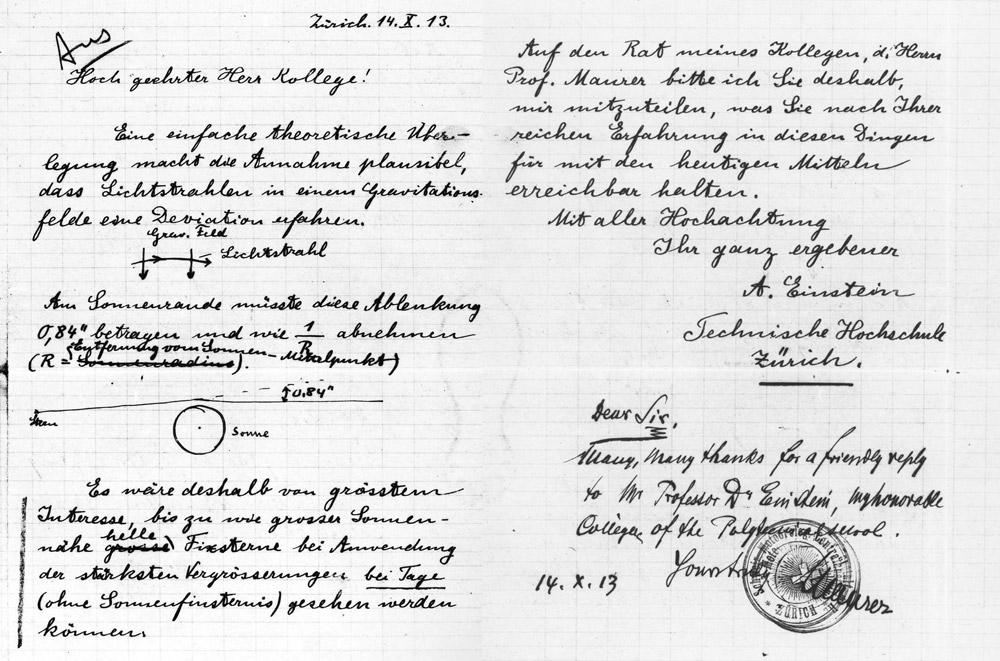 Zürich. 14. X. 13.
Hoch geehrter Herr Kollege!
Eine einfache theoretische Über-
legung macht die Annahme plausibel,
dass Lichtstrahlen in einem Gravitations-
felde eine Deviation erfahren.
Grav. Feld
Lichtstrahl
Am Sonnenrande müsste diese Ablenkung
0,84" betragen und wie 1/R abnehmen
(R = Sonnenradius). Entfernung vom Sonnen-Mittelpunkt)
0.84"
Stern
Sonne
Es wäre deshalb von grösstem
Interesse, bis zu wie grosser Sonnen-
nähe grosse helle Fixsterne bei Anwendung
der stärksten Vergrösserungen bei Tage
(ohne Sonnenfinsternis) gesehen werden
können.
Auf den Rat meines Kollegen, d. Herrn
Prof. Maurer bitte ich Sie deshalb,
mir mitzuteilen, was Sie nach Ihrer
reichen Erfahrung in diesen Dingen
für mit den heutigen Mitteln
erreichbar halten.
Mit aller Hochachtung
Ihr ganz ergebener
A. Einstein
Technische Hochschule
Zürich.
Dear Sir,
Many, many thanks for a friendly reply
to Mr Professor Dr Einstein, my honorable
Collegue of the Polytechnical school.
Yours
14. X. 13
Maurer
ZÜRICH